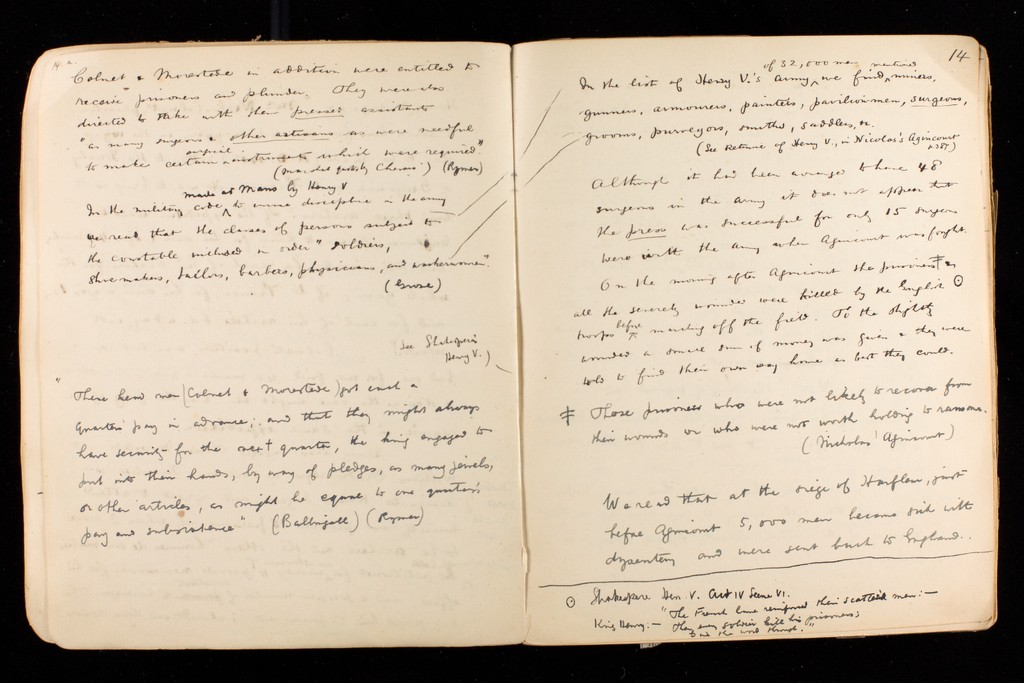 14 a.
Colnet & Morestede in addition were entitled to
receive prisoners and plunder. They were also
directed to take with them pressed assistants
"as many surgeons & other artisans as were needful
surgical
to make certain instruments which were required"
(Mans del quartly Chevau?) (Rymer)
made at Mans by Henry V
In the military code to ensure discipline in the army
we read that the classes of persons subject to
the constable included in order "soldiers,
shoemakers, tailors, barbers, physicians, and washerwomen".
(Grose)
See Shakespeare's
Henry V.)
"These head men (Colnet & Morestede) got each a
quarters pay in advance; and that they might always
have security for the next quarter, the king engaged to
put into their hands, by way of pledges, as many jewels,
or other articles, as might be equal to one quarter's
pay and subsistence" (Balbigall) (Rymer)
14
of 32,000 men mentioned
In the list of Henry V.'s army, we find, miners,
gunners, armourers, painters, pavilion men, surgeons,
grooms, purveyors, smiths, saddlers, &c.
(See Retinue of Henry V., in Nicolas's Agincourt
p 387)
Although it had been arranged to have 48
surgeons in the army it does not appear that
the press was successful for only 15 surgeons
were with the army when Agincourt was fought.
On the morning after Agincourt the prisoners ‡ &
all the severely wounded were killed by the English ⊙
troops before marching off the field. To the slightly
wounded a small sum of money was given & they were
told to find their own way home as best they could.
‡ Those prisoners who were not likely to recover from
their wounds or who were not worth holding to ransome.
(Nicholas' Agincourt)
We read that at the siege of Harfleur, just
before Agincourt 5,000 men became sick with
dysentery and were sent back to England.
⊙ Shakespere Hen. V. Act IV Scene VI.
"The French have reinforced their scatter'd men:—
King Henry:— Then every soldier kill his prisoners;
Give the word through."